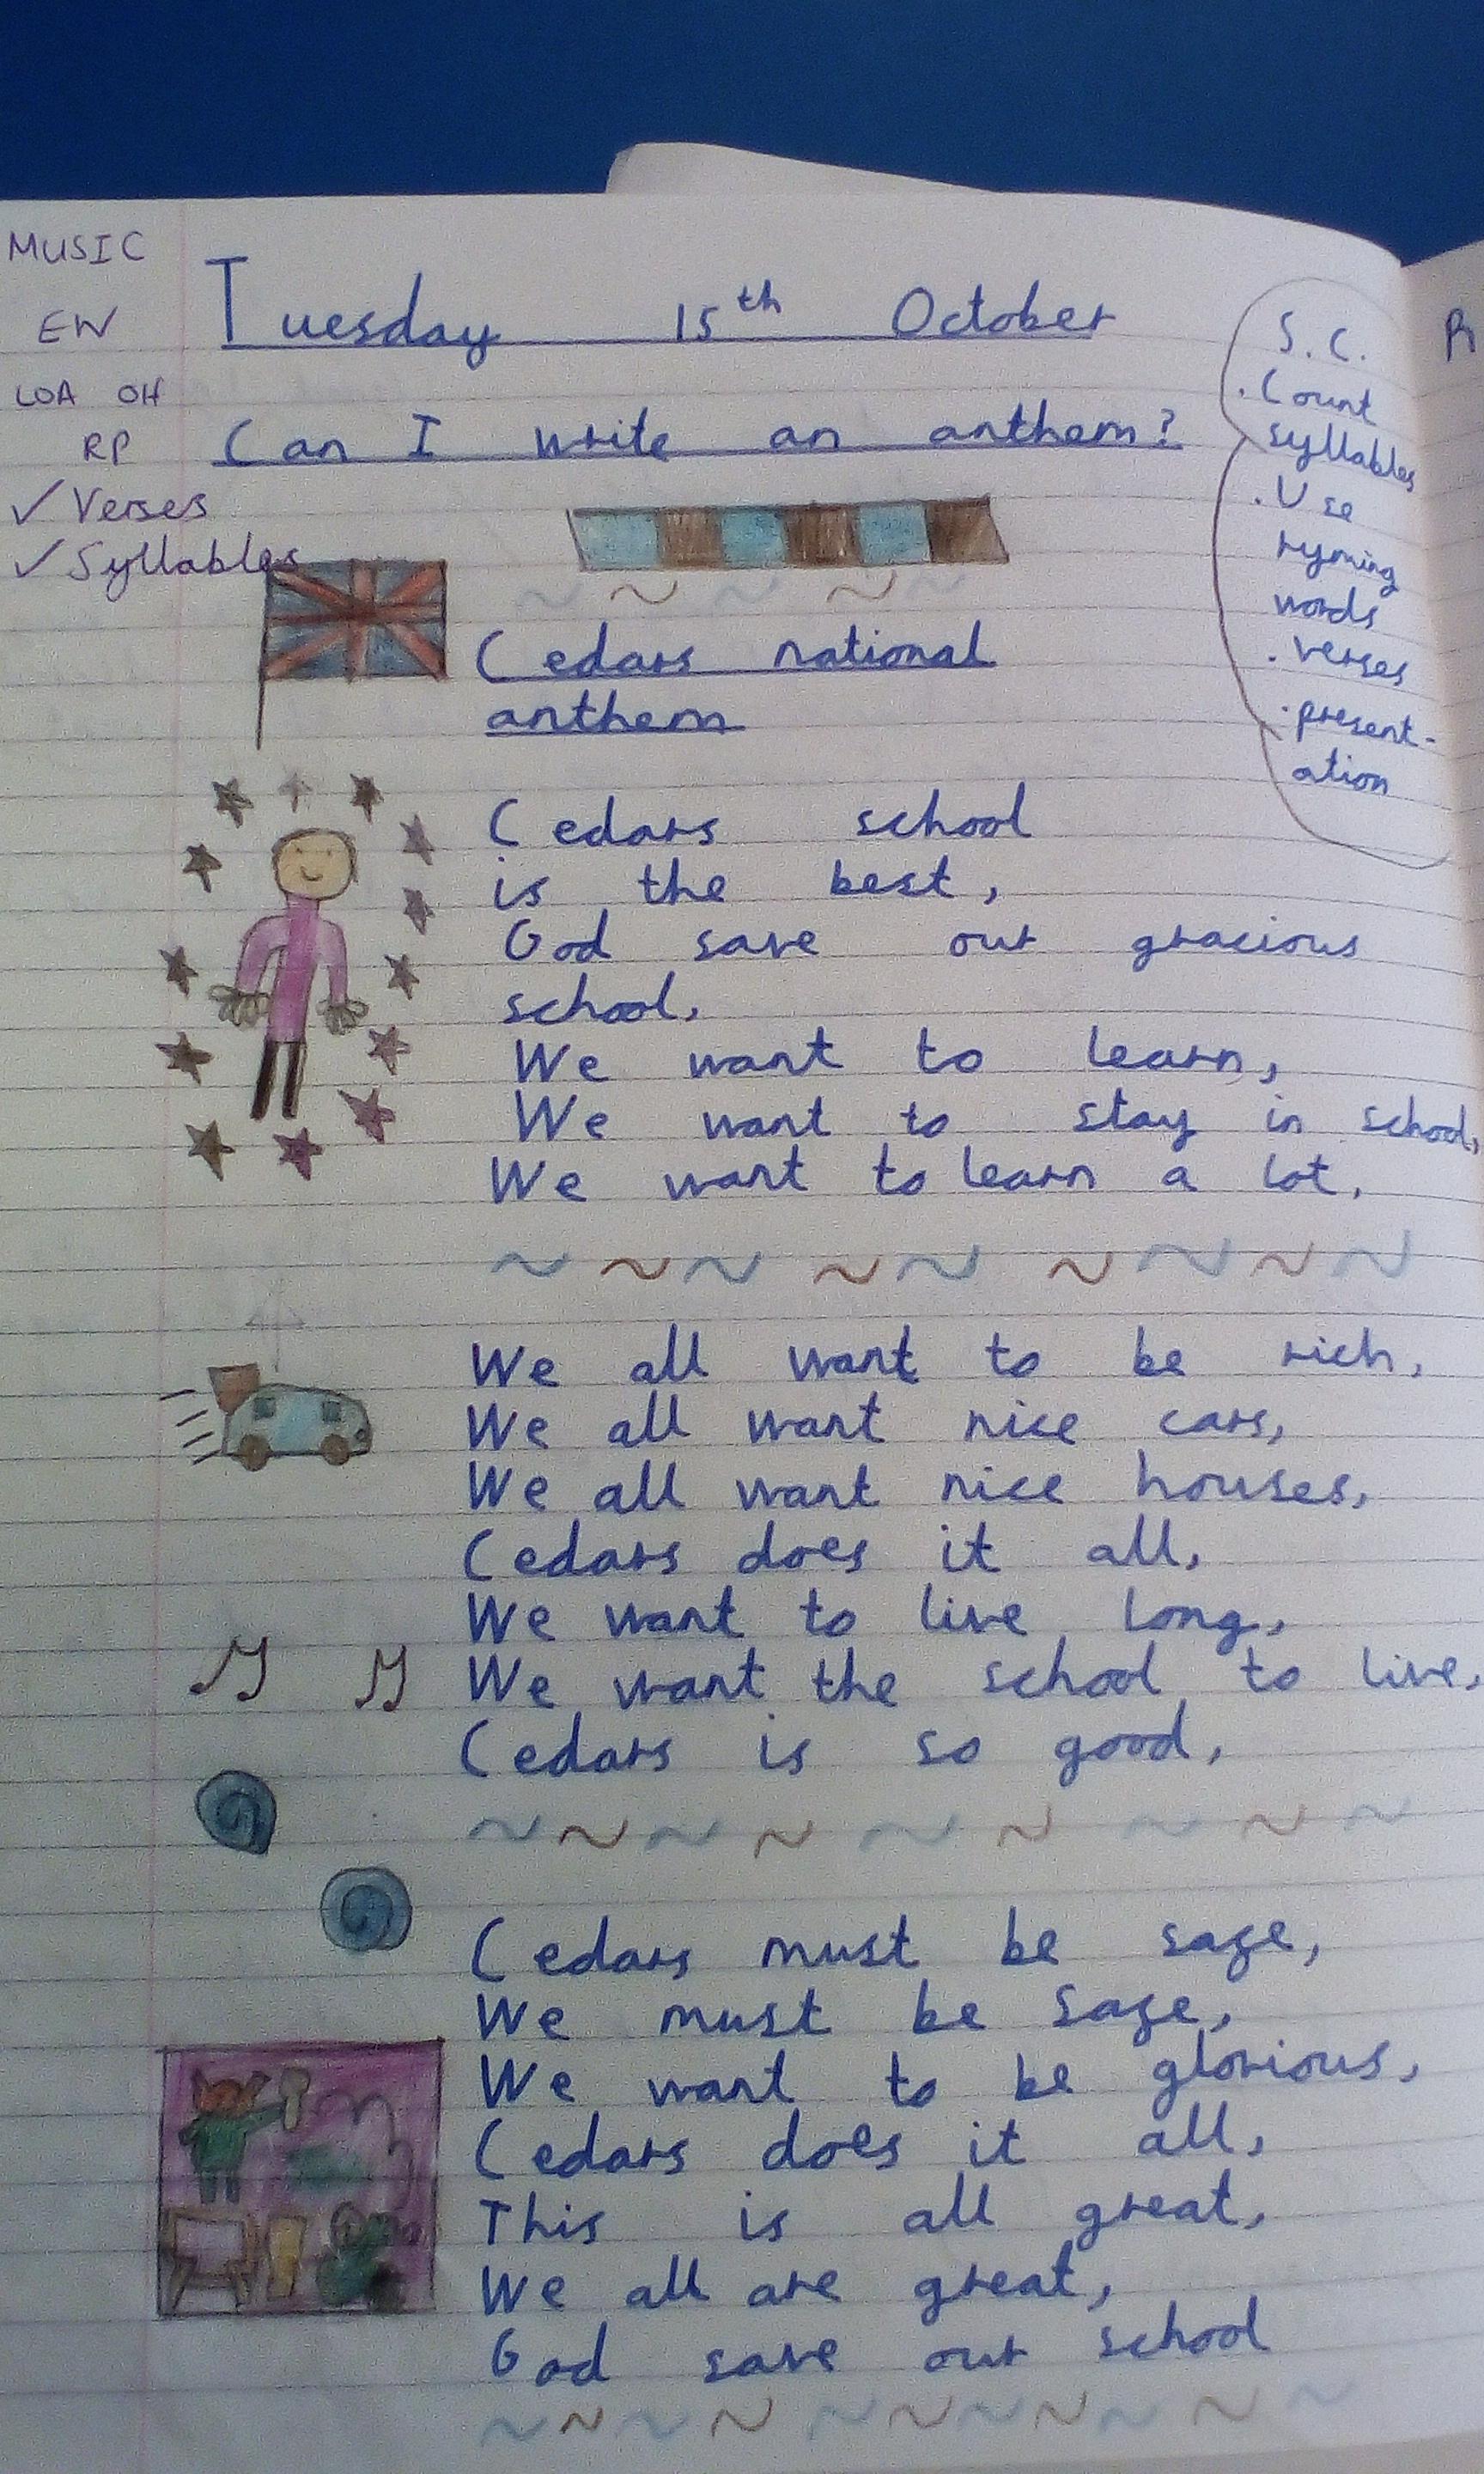 MUSIC
EW
LOA OH
RP
✓ Verses
✓ Syllables
Tuesday 15th October
Can I write an anthem?
S.C.
· Count
syllables
· Use
ryming
words
· verses
· present-
ation
Cedars national
anthem
Cedars school
is the best,
God save our gracious
school,
We want to learn,
We want to stay in school,
We want to learn a lot,
We all want to be rich,
We all want nice cars,
We all want nice houses,
Cedars does it all,
We want to live long,
We want the school to live,
Cedars is so good,
Cedars must be safe,
We must be safe,
We want to be glorious,
Cedars does it all,
This is all great,
We all are great,
God save our school